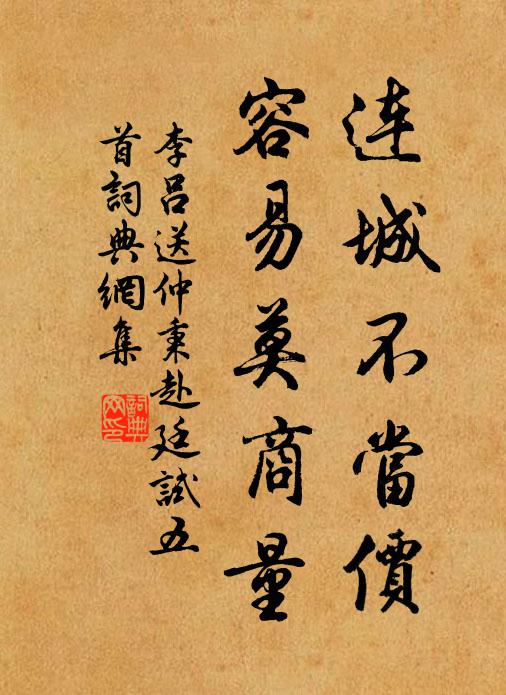 連城不當價
容易莫商量
李吕送仲秉赴廷試五
首詞典網集
詞典
网印